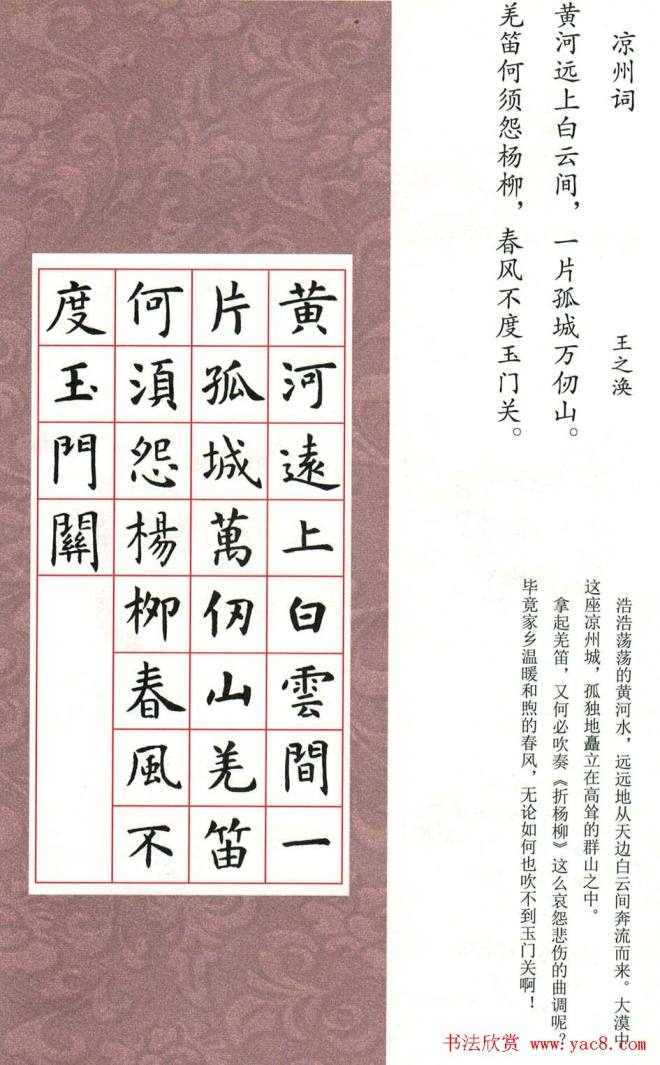 凉州词 王之涣
黄河远上白云间，一片孤城万仞山。
羌笛何须怨杨柳，春风不度玉门关。
浩浩荡荡的黄河水，远远地从天边白云间奔流而来。大漠中
这座凉州城，孤独地矗立在高耸的群山之中。
拿起羌笛，又何必吹奏《折杨柳》这么哀怨悲伤的曲调呢？
毕竟家乡温暖和煦的春风，无论如何也吹不到玉门关啊！
黄河遠上白雲間一
片孤城萬仞山羌笛
何須怨楊柳春風不
度玉門關
书法欣赏 www.yac8.com